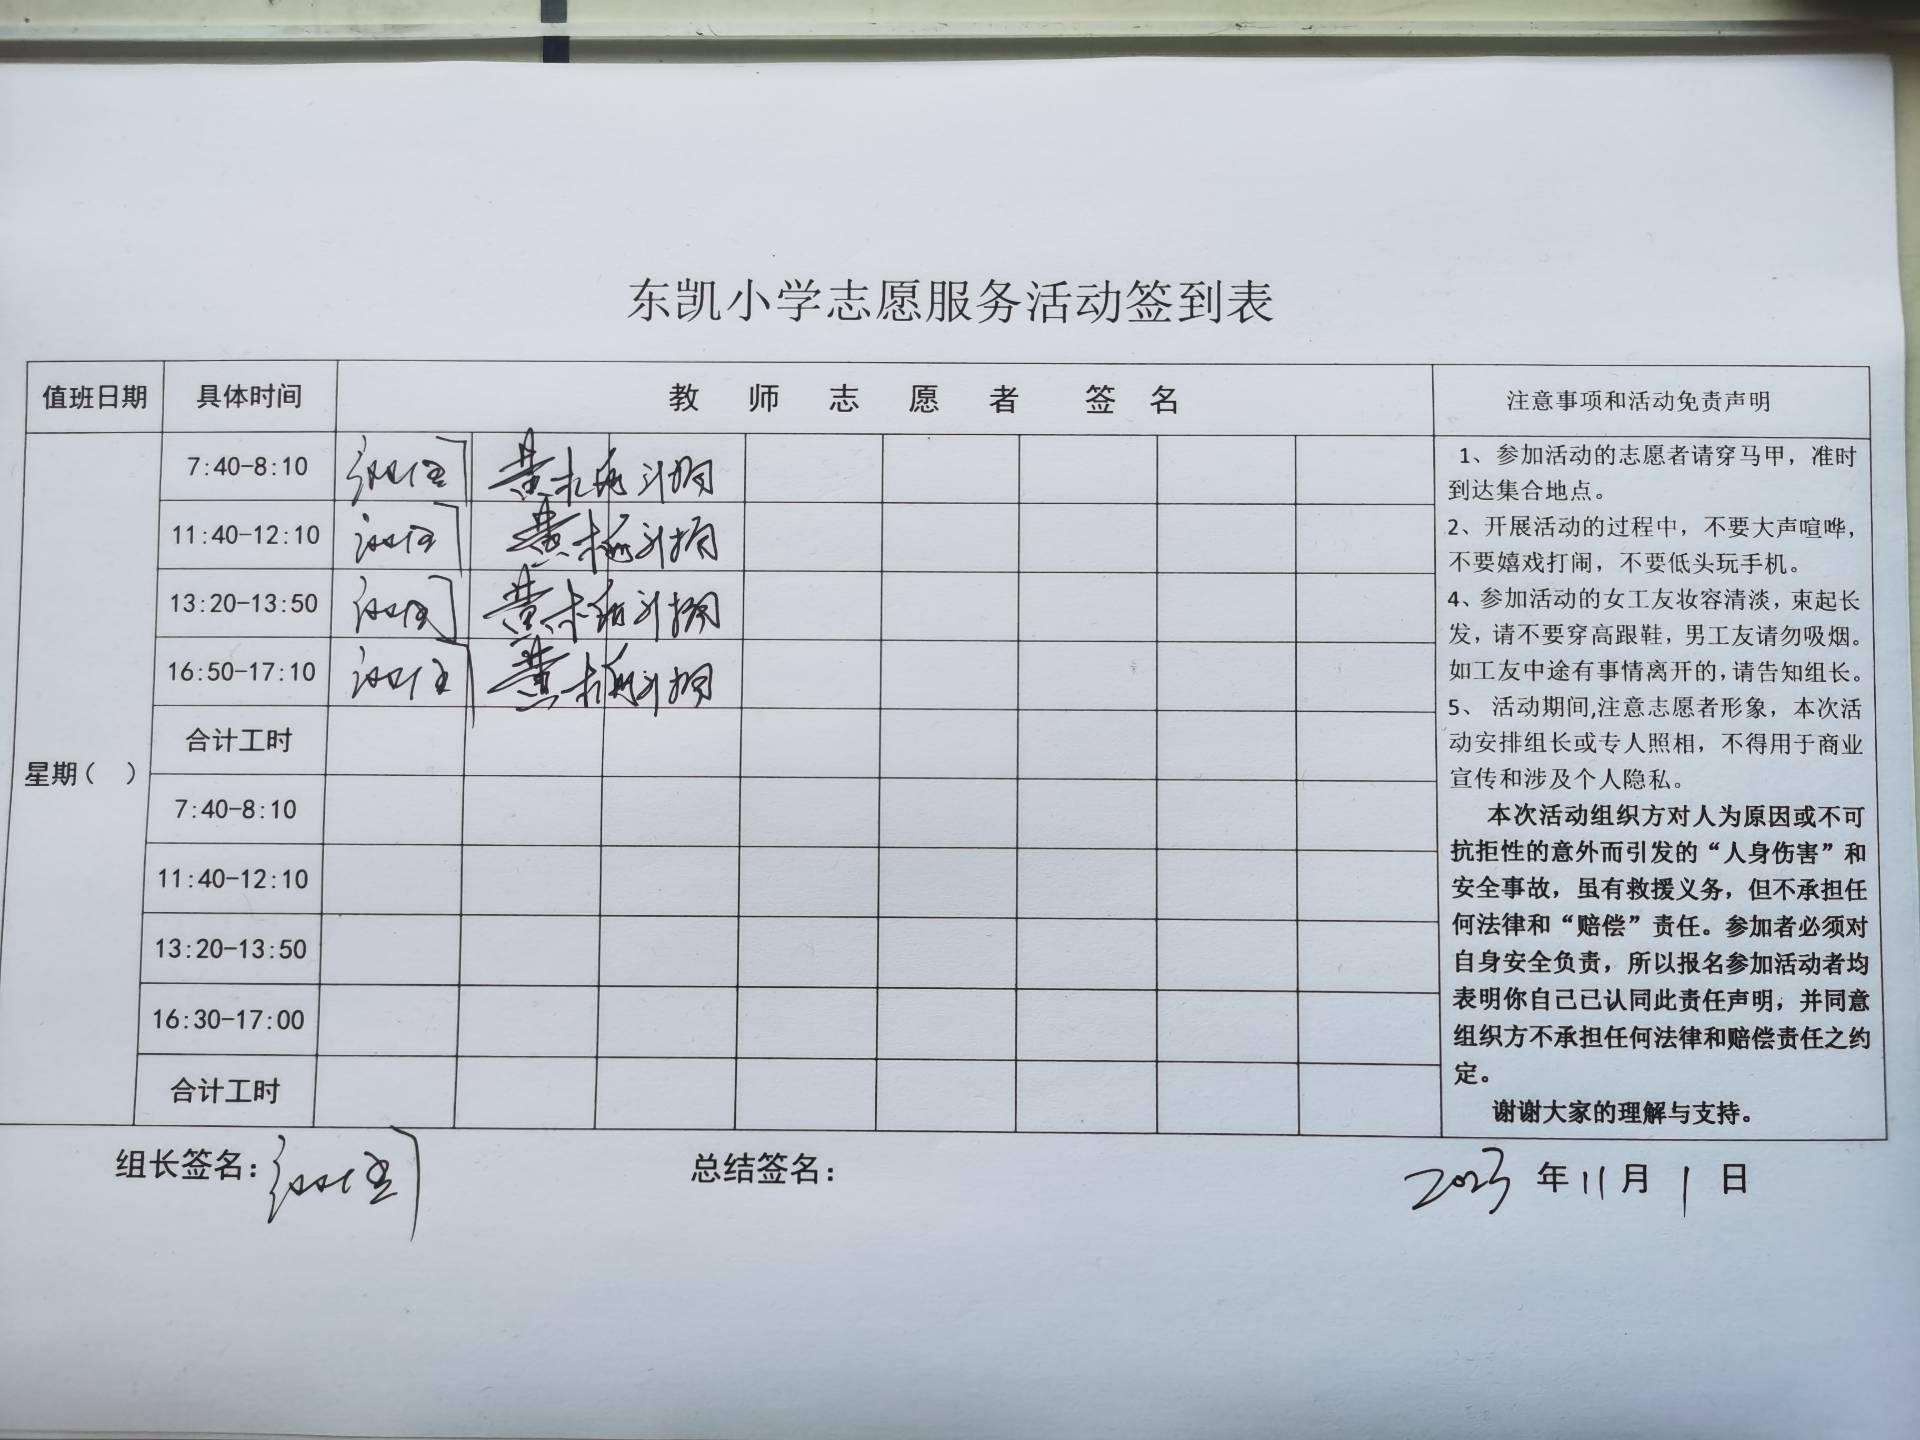 东凯小学志愿服务活动签到表
值班日期 具体时间 教师志愿者签名 注意事项和活动免责声明
星期( )
7:40-8:10
11:40-12:10
13:20-13:50
16:50-17:10
合计工时
7:40-8:10
11:40-12:10
13:20-13:50
16:30-17:00
合计工时
1、参加活动的志愿者请穿马甲，准时
到达集合地点。
2、开展活动的过程中，不要大声喧哗，
不要嬉戏打闹，不要低头玩手机。
4、参加活动的女工友妆容清淡，束起长
发，请不要穿高跟鞋，男工友请勿吸烟。
如工友中途有事情离开的，请告知组长。
5、 活动期间,注意志愿者形象，本次活
动安排组长或专人照相，不得用于商业
宣传和涉及个人隐私。
本次活动组织方对人为原因或不可
抗拒性的意外而引发的“人身伤害”和
安全事故，虽有救援义务，但不承担任
何法律和“赔偿”责任。参加者必须对
自身安全负责，所以报名参加活动者均
表明你自己已认同此责任声明，并同意
组织方不承担任何法律和赔偿责任之约
定。
谢谢大家的理解与支持。
组长签名: 总结签名: 2023 年 11 月 1 日